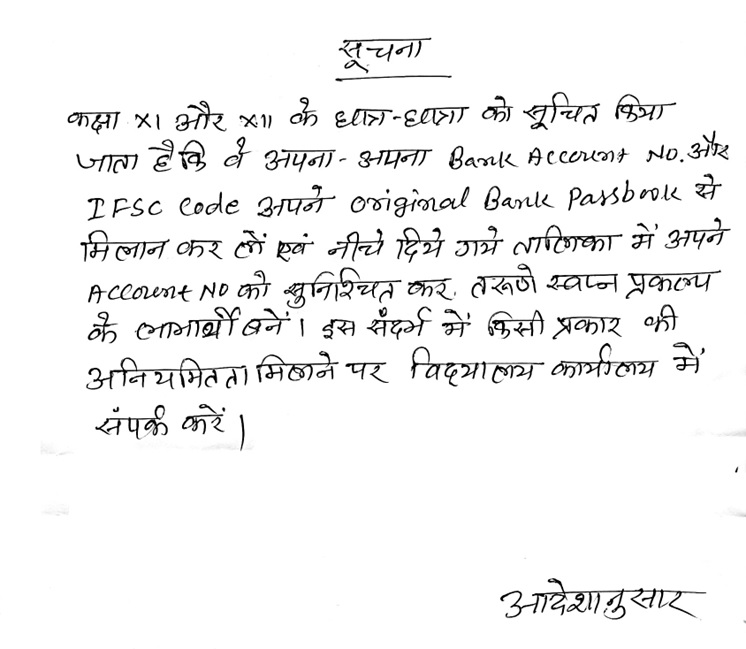 सूचना
कक्षा XI और XII के छात्र-छात्रा को सूचित किया
जाता है कि वे अपना-अपना Bank Account No. और
IFSC Code अपने original Bank Passbook से
मिलान कर लें एवं नीचे दिये गये तालिका में अपने
Account No को सुनिश्चित कर, तरूणे स्वप्न प्रकल्प
के लाभार्थी बनें। इस संदर्भ में किसी प्रकार की
अनियमितता मिलने पर विद्यालय कार्यालय में
संपर्क करें।
आदेशानुसार